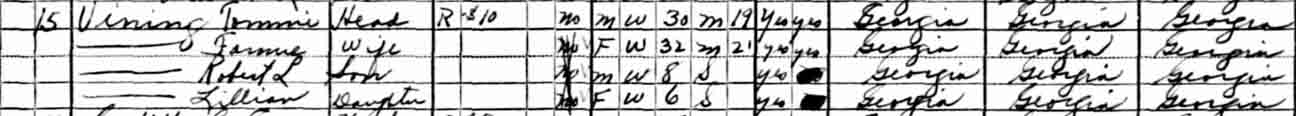 15 Vining Tommie Head R $10 No M W 30 M 19 Yes yes Georgia Georgia Georgia
—— Fannie Wife No F W 32 M 21 yes yes Georgia Georgia Georgia
—— Robert L Son No M W 8 S yes Georgia Georgia Georgia
—— Lillian Daughter No F W 6 S yes Georgia Georgia Georgia